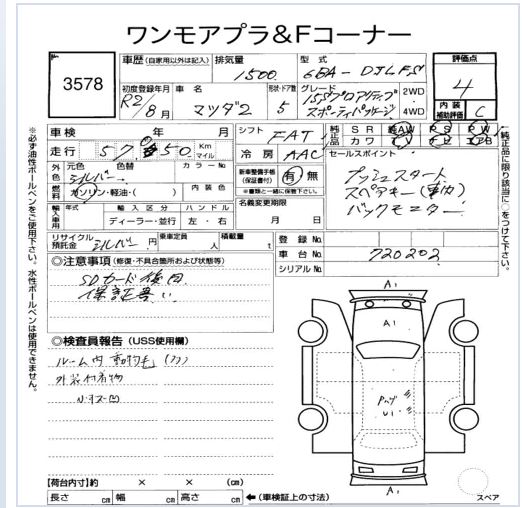 ワンモアプラ&Fコーナー
3578
車歴 (自家用以外は記入) 排気量 1500 型式 6BA-DJLFS
評価点 4
初度登録年月 R2/8月 車名 マツダ2 形状・ドア数 5 グレード 15Sプロアクティブ スポーティパッケージ 2WD 4WD
内装補助評価 C
※必ず油性ボールペンをご使用下さい。水性ボールペンは使用できません。
車検 年 月 シフト FAT 純正品 SR AW PS PW
カワ
走行 Km マイル 冷房 AAC
セールスポイント
プッシュスタート
スペアキー(車内)
バックモニター
外色 元色 シルバー 色替 カラーNo
燃料 ガソリン・軽油・( ) 内装色
新車整備手帳(保証書付) 有 無
※書類と一緒に保管下さい。
輸入車用 年式 輸入区分 ハンドル
ディーラー・並行 左・右
名義変更期限 月 日
※純正品に限り該当に○をつけて下さい。
リサイクル預託金 シルバー 円 乗車定員 人 積載量 t
登録No.
車台No. 720202
シリアルNo.
◎注意事項 (修復・不具合箇所および状態等)
SDカード後日
保証書
◎検査員報告 (USS使用欄)
ルーム内 動物毛
外装付着物
A1
A1
U1
A1
【荷台内寸】約 × × (cm)
長さ cm 幅 cm 高さ cm ←(車検証上の寸法)
スペア